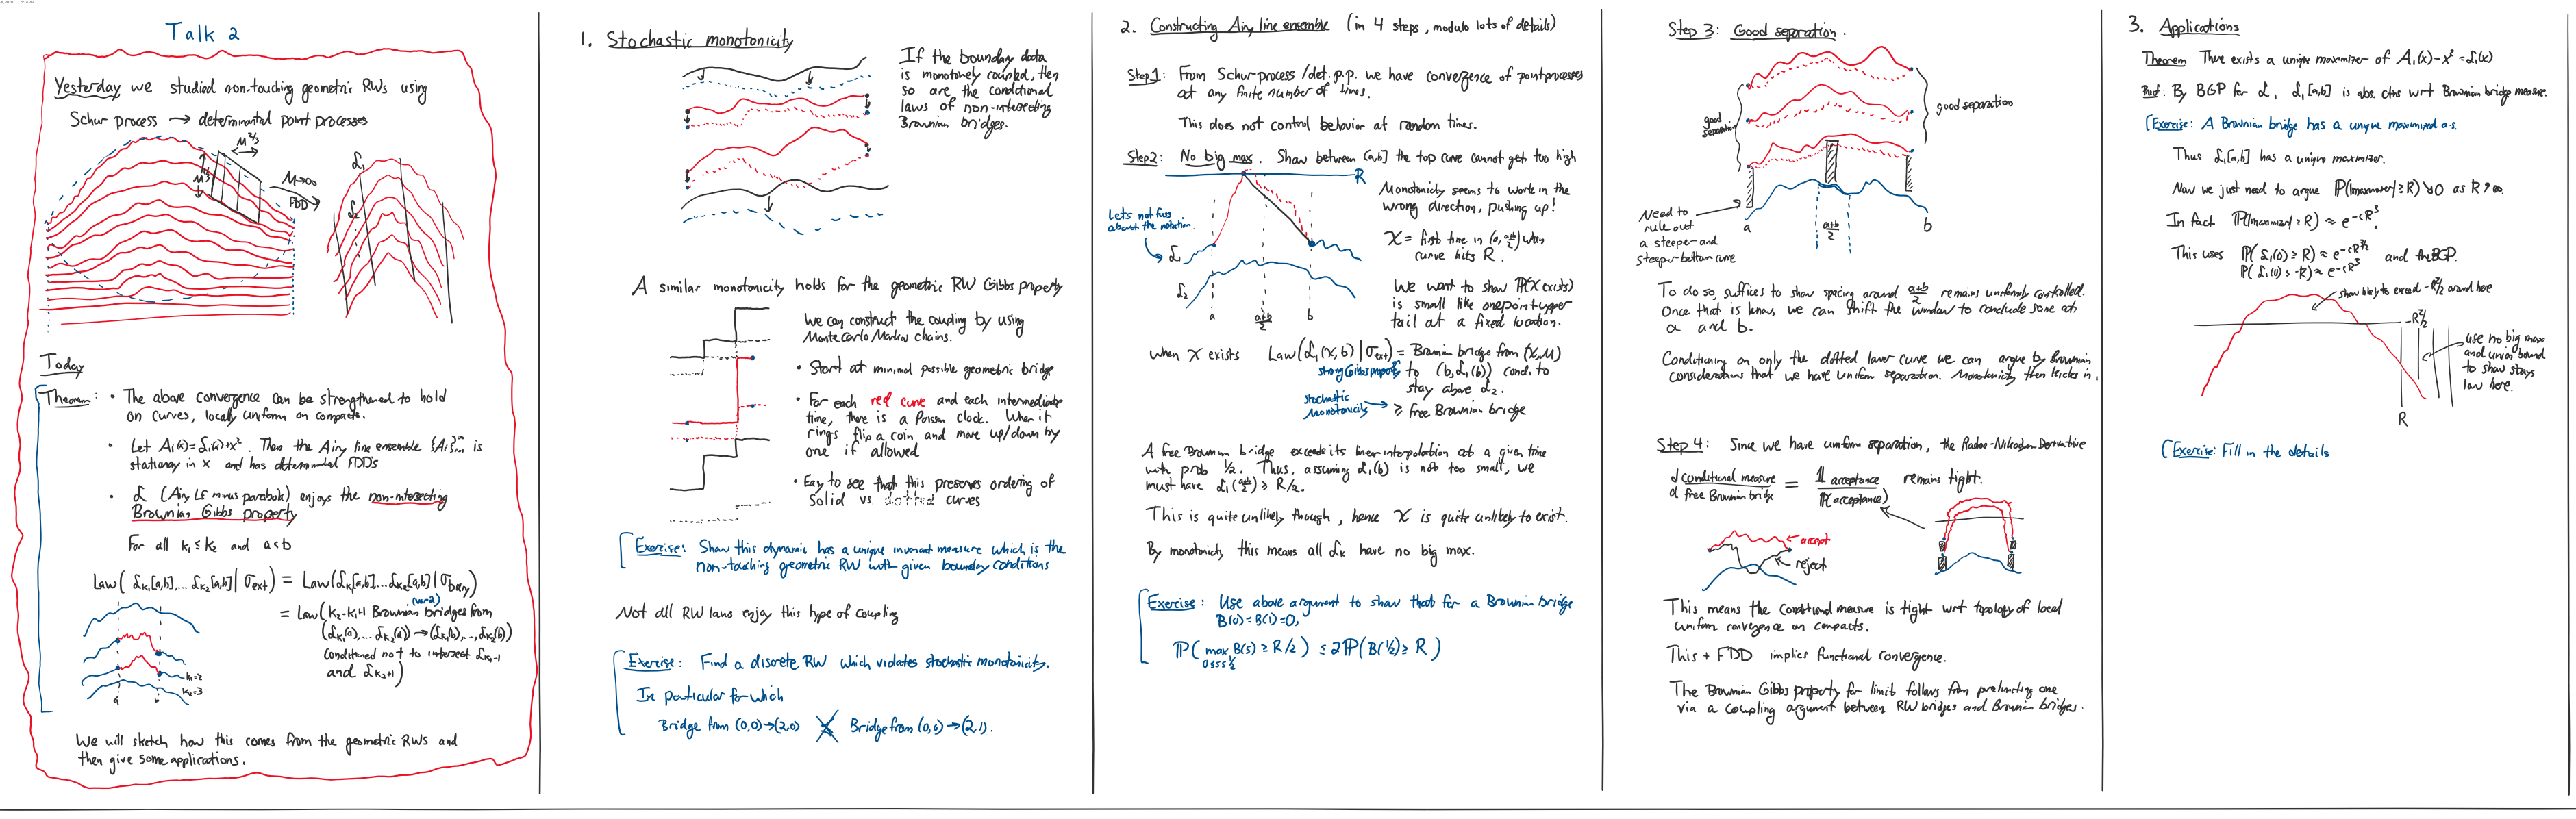 Talk 2
Yesterday we studied non-touching geometric RWs using
Schur process → determinantal point processes
M^{2/3}
M^{1/3}
M→∞
FDD
𝓛₁
𝓛₂
Today
Theorem: • The above convergence can be strengthened to hold
on curves, locally uniform on compacts.
• Let Aᵢ(x)=𝓛ᵢ(x)+x². Then the Airy line ensemble {Aᵢ}ᵢ₌₁^∞ is
stationary in x and has determinantal FDDs
• 𝓛 (Airy LE minus parabola) enjoys the non-intersecting
Brownian Gibbs property
For all k₁≤k₂ and a<b
Law(𝓛_{k₁}[a,b],... 𝓛_{k₂}[a,b] | σ_ext) = Law(𝓛_{k₁}[a,b]... 𝓛_{k₂}[a,b] | σ_bdry)
(var 2)
= Law(k₂-k₁+1 Brownian bridges from
(𝓛_{k₁}(a),... 𝓛_{k₂}(a)) → (𝓛_{k₁}(b),..., 𝓛_{k₂}(b))
conditioned not to intersect 𝓛_{k₁-1}
and 𝓛_{k₂+1})
k₁=2
k₂=3
a
b
We will sketch how this comes from the geometric RWs and
then give some applications.
1. Stochastic monotonicity
If the boundary data
is monotonely coupled, then
so are the conditional
laws of non-intersecting
Brownian bridges.
A similar monotonicity holds for the geometric RW Gibbs property
We can construct the coupling by using
Monte Carlo Markov chains.
• Start at minimal possible geometric bridge
• For each red curve and each intermediate
time, there is a Poisson clock. When it
rings flip a coin and move up/down by
one if allowed
• Easy to see that this preserves ordering of
solid vs dotted curves
Exercise: Show this dynamic has a unique invariant measure which is the
non-touching geometric RW with given boundary conditions
Not all RW laws enjoy this type of coupling
Exercise: Find a discrete RW which violates stochastic monotonicity.
In particular for which
Bridge from (0,0)→(2,0) Bridge from (0,0)→(2,1).
2. Constructing Airy line ensemble (in 4 steps, modulo lots of details)
Step 1: From Schur process / det. p.p. we have convergence of point processes
at any finite number of times.
This does not control behavior at random times.
Step 2: No big max. Show between [a,b] the top curve cannot get too high.
R
Lets not fuss
about the notation.
Monotonicity seems to work in the
wrong direction, pushing up!
χ = first time in (a, (a+b)/2) when
curve hits R.
𝓛₁
𝓛₂
a
(a+b)/2
b
We want to show ℙ(χ exists)
is small like one point upper
tail at a fixed location.
When χ exists Law(𝓛₁(χ,b) | σ_ext) = Brownian bridge from (χ,M)
strong Gibbs property
to (b,𝓛₁(b)) cond. to
stay above 𝓛₂.
Stochastic
Monotonicity → ≥ free Brownian bridge
A free Brownian bridge exceeds its linear interpolation at a given time
with prob 1/2. Thus, assuming 𝓛₁(b) is not too small, we
must have 𝓛₁((a+b)/2) ≥ R/2.
This is quite unlikely though, hence χ is quite unlikely to exist.
By monotonicity this means all 𝓛_k have no big max.
Exercise: Use above argument to show that for a Brownian bridge
B(0)=B(1)=0,
ℙ(max_{0≤s≤1/2} B(s) ≥ R/2) ≤ 2ℙ(B(1/2) ≥ R)
Step 3: Good separation.
good
separation
good separation
Need to
rule out
a steeper and
steeper bottom curve
a
(a+b)/2
b
To do so, suffices to show spacing around (a+b)/2 remains uniformly controlled.
Once that is known, we can shift the window to conclude same at
a and b.
Conditioning on only the dotted lower curve we can argue by Brownian
considerations that we have uniform separation. Monotonicity then kicks in.
Step 4: Since we have uniform separation, the Radon-Nikodym Derivative
d conditional measure / d free Brownian bridge = 𝟙 acceptance / ℙ(acceptance) remains tight.
accept
reject
This means the conditional measure is tight wrt topology of local
uniform convergence on compacts.
This + FDD implies functional convergence.
The Brownian Gibbs property for limit follows from prelimiting one
via a coupling argument between RW bridges and Brownian bridges.
3. Applications
Theorem There exists a unique maximizer of A₁(x)-x² = 𝓛₁(x)
Proof: By BGP for 𝓛, 𝓛₁[a,b] is abs. cts wrt Brownian bridge measure.
(Exercise: A Brownian bridge has a unique maximized a.s.
Thus 𝓛₁[a,b] has a unique maximizer.
Now we just need to argue ℙ(|maximizer| ≥ R) ↘ 0 as R ↗ ∞.
In fact ℙ(|maximizer| ≥ R) ≈ e^{-cR³}.
This uses ℙ(𝓛₁(0) ≥ R) ≈ e^{-cR^{3/2}} and the BGP.
ℙ(𝓛₁(0) ≤ -R) ≈ e^{-cR³}
show likely to exceed -R²/2 around here
-R²/2
use no big max
and union bound
to show stays
low here.
R
(Exercise: Fill in the details